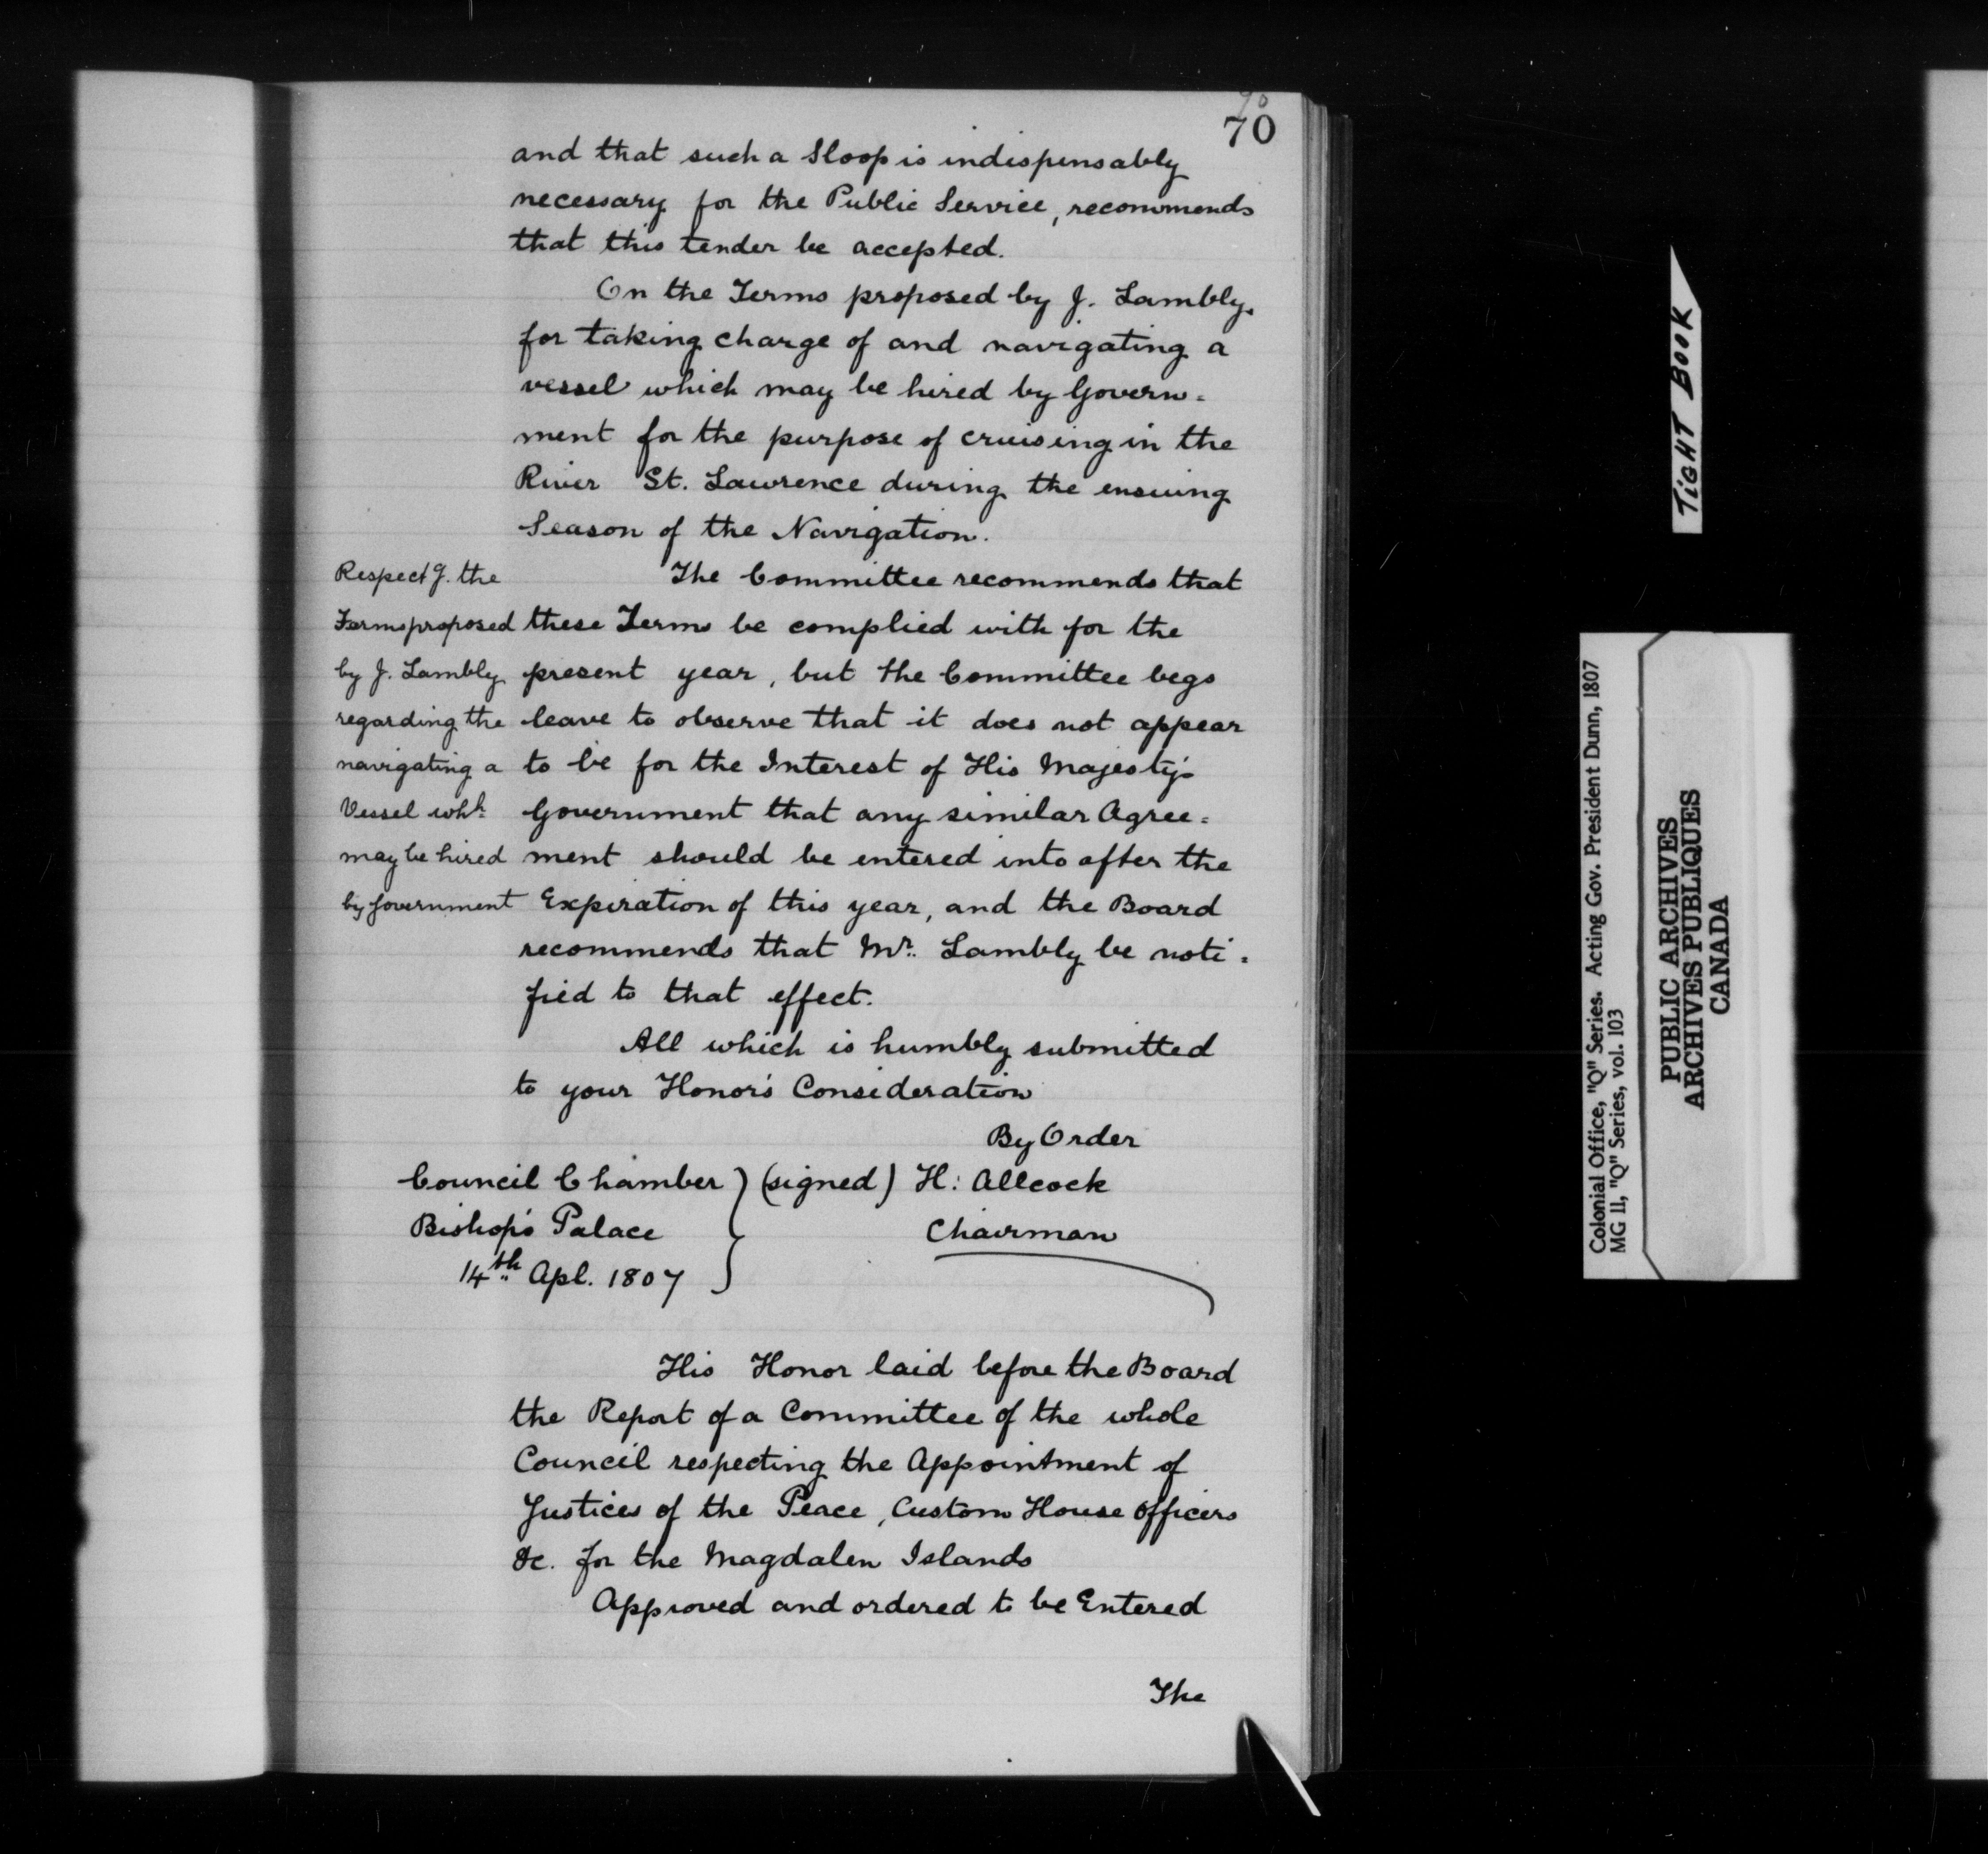 90
70
and that such a Sloop is indispensably
necessary for the Public Service, recommends
that this tender be accepted.
On the Terms proposed by J. Lambly
for taking charge of and navigating a
vessel which may be hired by Govern=
ment for the purpose of cruising in the
River St. Lawrence during the ensuing
Season of the Navigation.
Respectg. the
Terms proposed
by J. Lambly
regarding the
navigating a
Vessel whh.
may be hired
by Government
The Committee recommends that
these Terms be complied with for the
present year, but the Committee begs
leave to observe that it does not appear
to be for the Interest of His Majesty's
Government that any similar Agree=
ment should be entered into after the
Expiration of this year, and the Board
recommends that Mr. Lambly be noti=
fied to that effect.
All which is humbly submitted
to your Honor's Consideration
By Order
Council Chamber } (signed) H: Allcock
Bishop's Palace Chairman
14th Apl. 1807
His Honor laid before the Board
the Report of a Committee of the whole
Council respecting the Appointment of
Justices of the Peace, Custom House Officers
&c. for the Magdalen Islands
Approved and ordered to be Entered
The
TIGHT BOOK
Colonial Office, "Q" Series. Acting Gov. President Dunn, 1807
MG 11, "Q" Series, vol. 103
PUBLIC ARCHIVES
ARCHIVES PUBLIQUES
CANADA